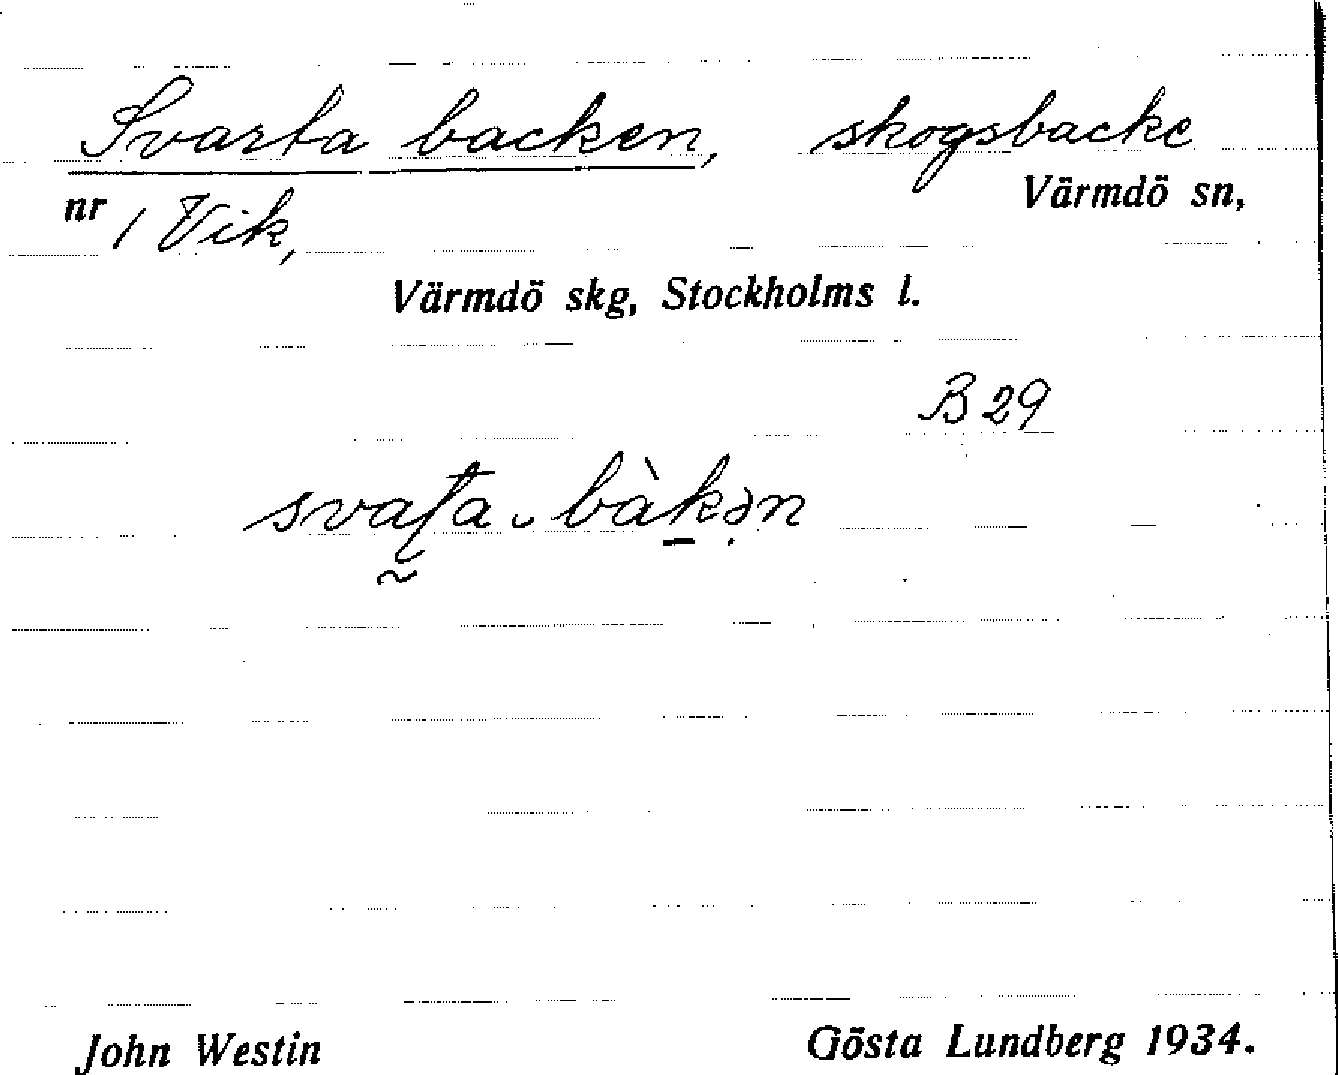 Svarta backen, skogsbacke
Värmdö sn,
nr 1 Vik,
Värmdö skg, Stockholms l.
B 29
svaʈa bàkən
John Westin
Gösta Lundberg 1934.